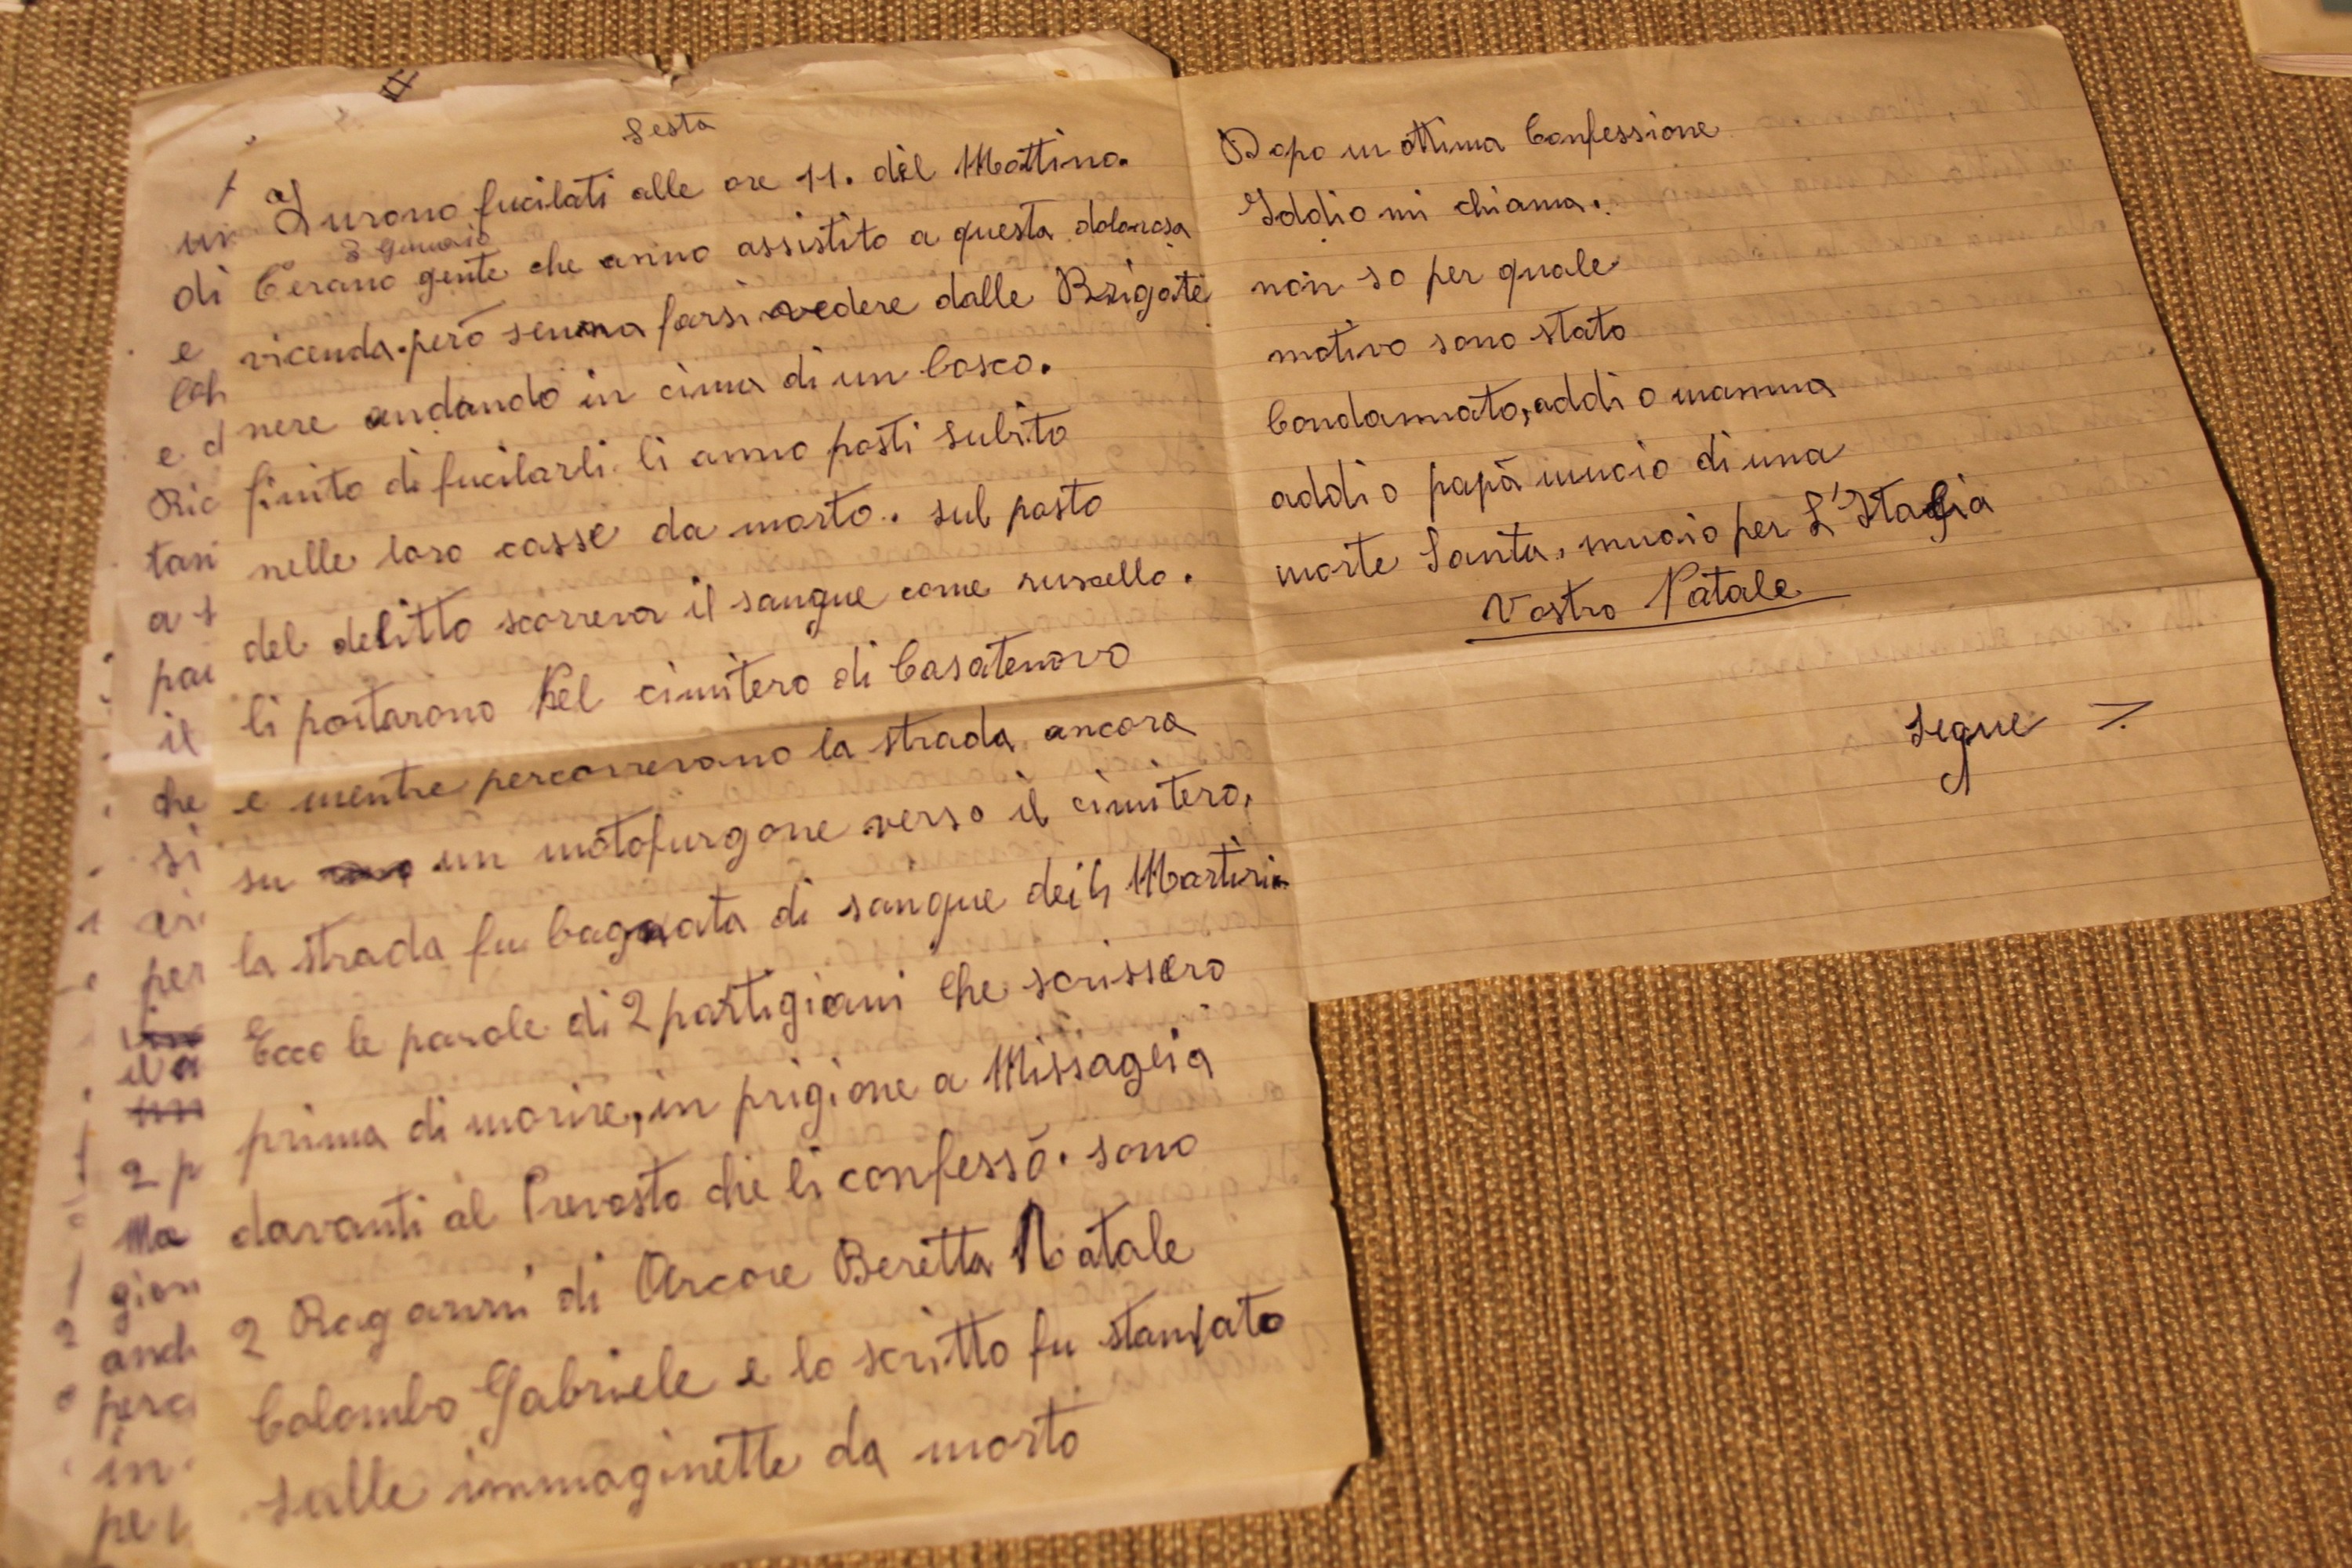 Sesta
Furono fucilati alle ore 11. del Mattino.
3 Gennaio
C'erano gente che anno assistito a questa dolorosa
vicenda. però senza farsi vedere dalle Brigate
nere andando in cima di un bosco.
finito di fucilarli li anno posti subito
nelle loro casse da morto. sul posto
del delitto scorreva il sangue come ruscello.
li portarono Nel cimitero di Casatenovo
e mentre percorrevano la strada ancora
su un motofurgone verso il cimitero,
la strada fu bagnata di sangue dei 4 Martiri
Ecco le parole di 2 partigiani che scrissero
prima di morire, in prigione a Missaglia
davanti al Prevosto che li confessò. sono
2 Ragazzi di Arcore Beretta Natale
Colombo Gabriele e lo scritto fu stampato
sulle immaginette da morto
Dopo un ottima Confessione
Iddio mi chiama.
non so per quale
motivo sono stato
Condannato, addio mamma
addio papà muoio di una
morte Santa, muoio per L'Italia
Vostro Natale
Segue
un
di
e
e d
Ric
tan
a s
pai
il
che
si
per
2 p
Ma
gion
anch
perc
in
per